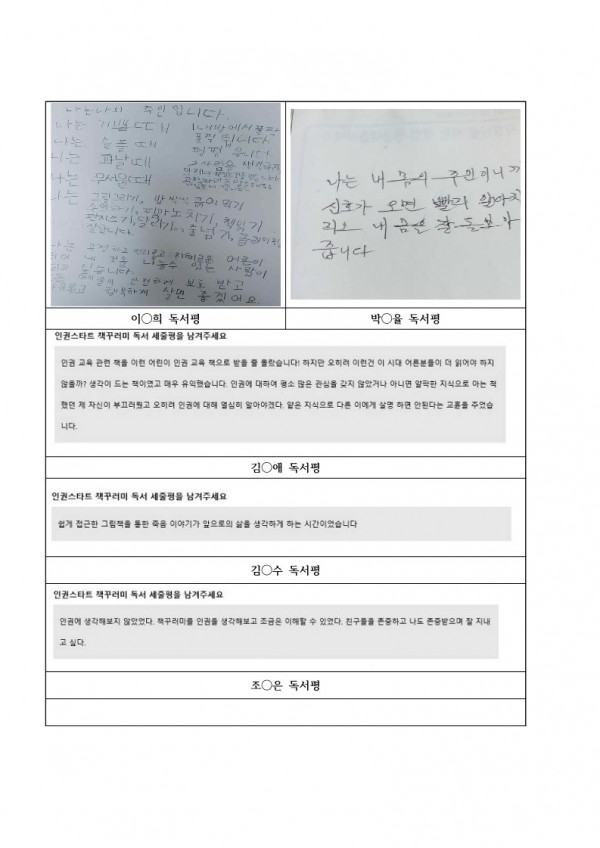 나는 나의 주인입니다.
나는 기쁠때
나는 슬플때
나는 화날때
나는 무서울때
나는 내 몸의 주인이니까
신호가 오면 빨리 알아차
리고 내 몸을 잘 돌보아
줍니다
이○희 독서평
박○율 독서평
인권스타트 책꾸러미 독서 세줄평을 남겨주세요
인권 교육 관련 책을 이런 어린이 인권 교육 책으로 받을 줄 몰랐습니다! 하지만 오히려 이런건 이 시대 어른분들이 더 읽어야 하지
않을까? 생각이 드는 책이였고 매우 유익했습니다. 인권에 대하여 평소 많은 관심을 갖지 않았거나 아니면 얄팍한 지식으로 아는 척
했던 제 자신이 부끄러웠고 오히려 인권에 대해 열심히 알아야겠다. 얕은 지식으로 다른 이에게 설명 하면 안된다는 교훈을 주었습
니다.
김○애 독서평
인권스타트 책꾸러미 독서 세줄평을 남겨주세요
쉽게 접근한 그림책을 통한 죽음 이야기가 앞으로의 삶을 생각하게 하는 시간이었습니다
김○수 독서평
인권스타트 책꾸러미 독서 세줄평을 남겨주세요
인권에 생각해보지 않았었다. 책꾸러미를 인권을 생각해보고 조금은 이해할 수 있었다. 친구들을 존중하고 나도 존중받으며 잘 지내
고 싶다.
조○은 독서평